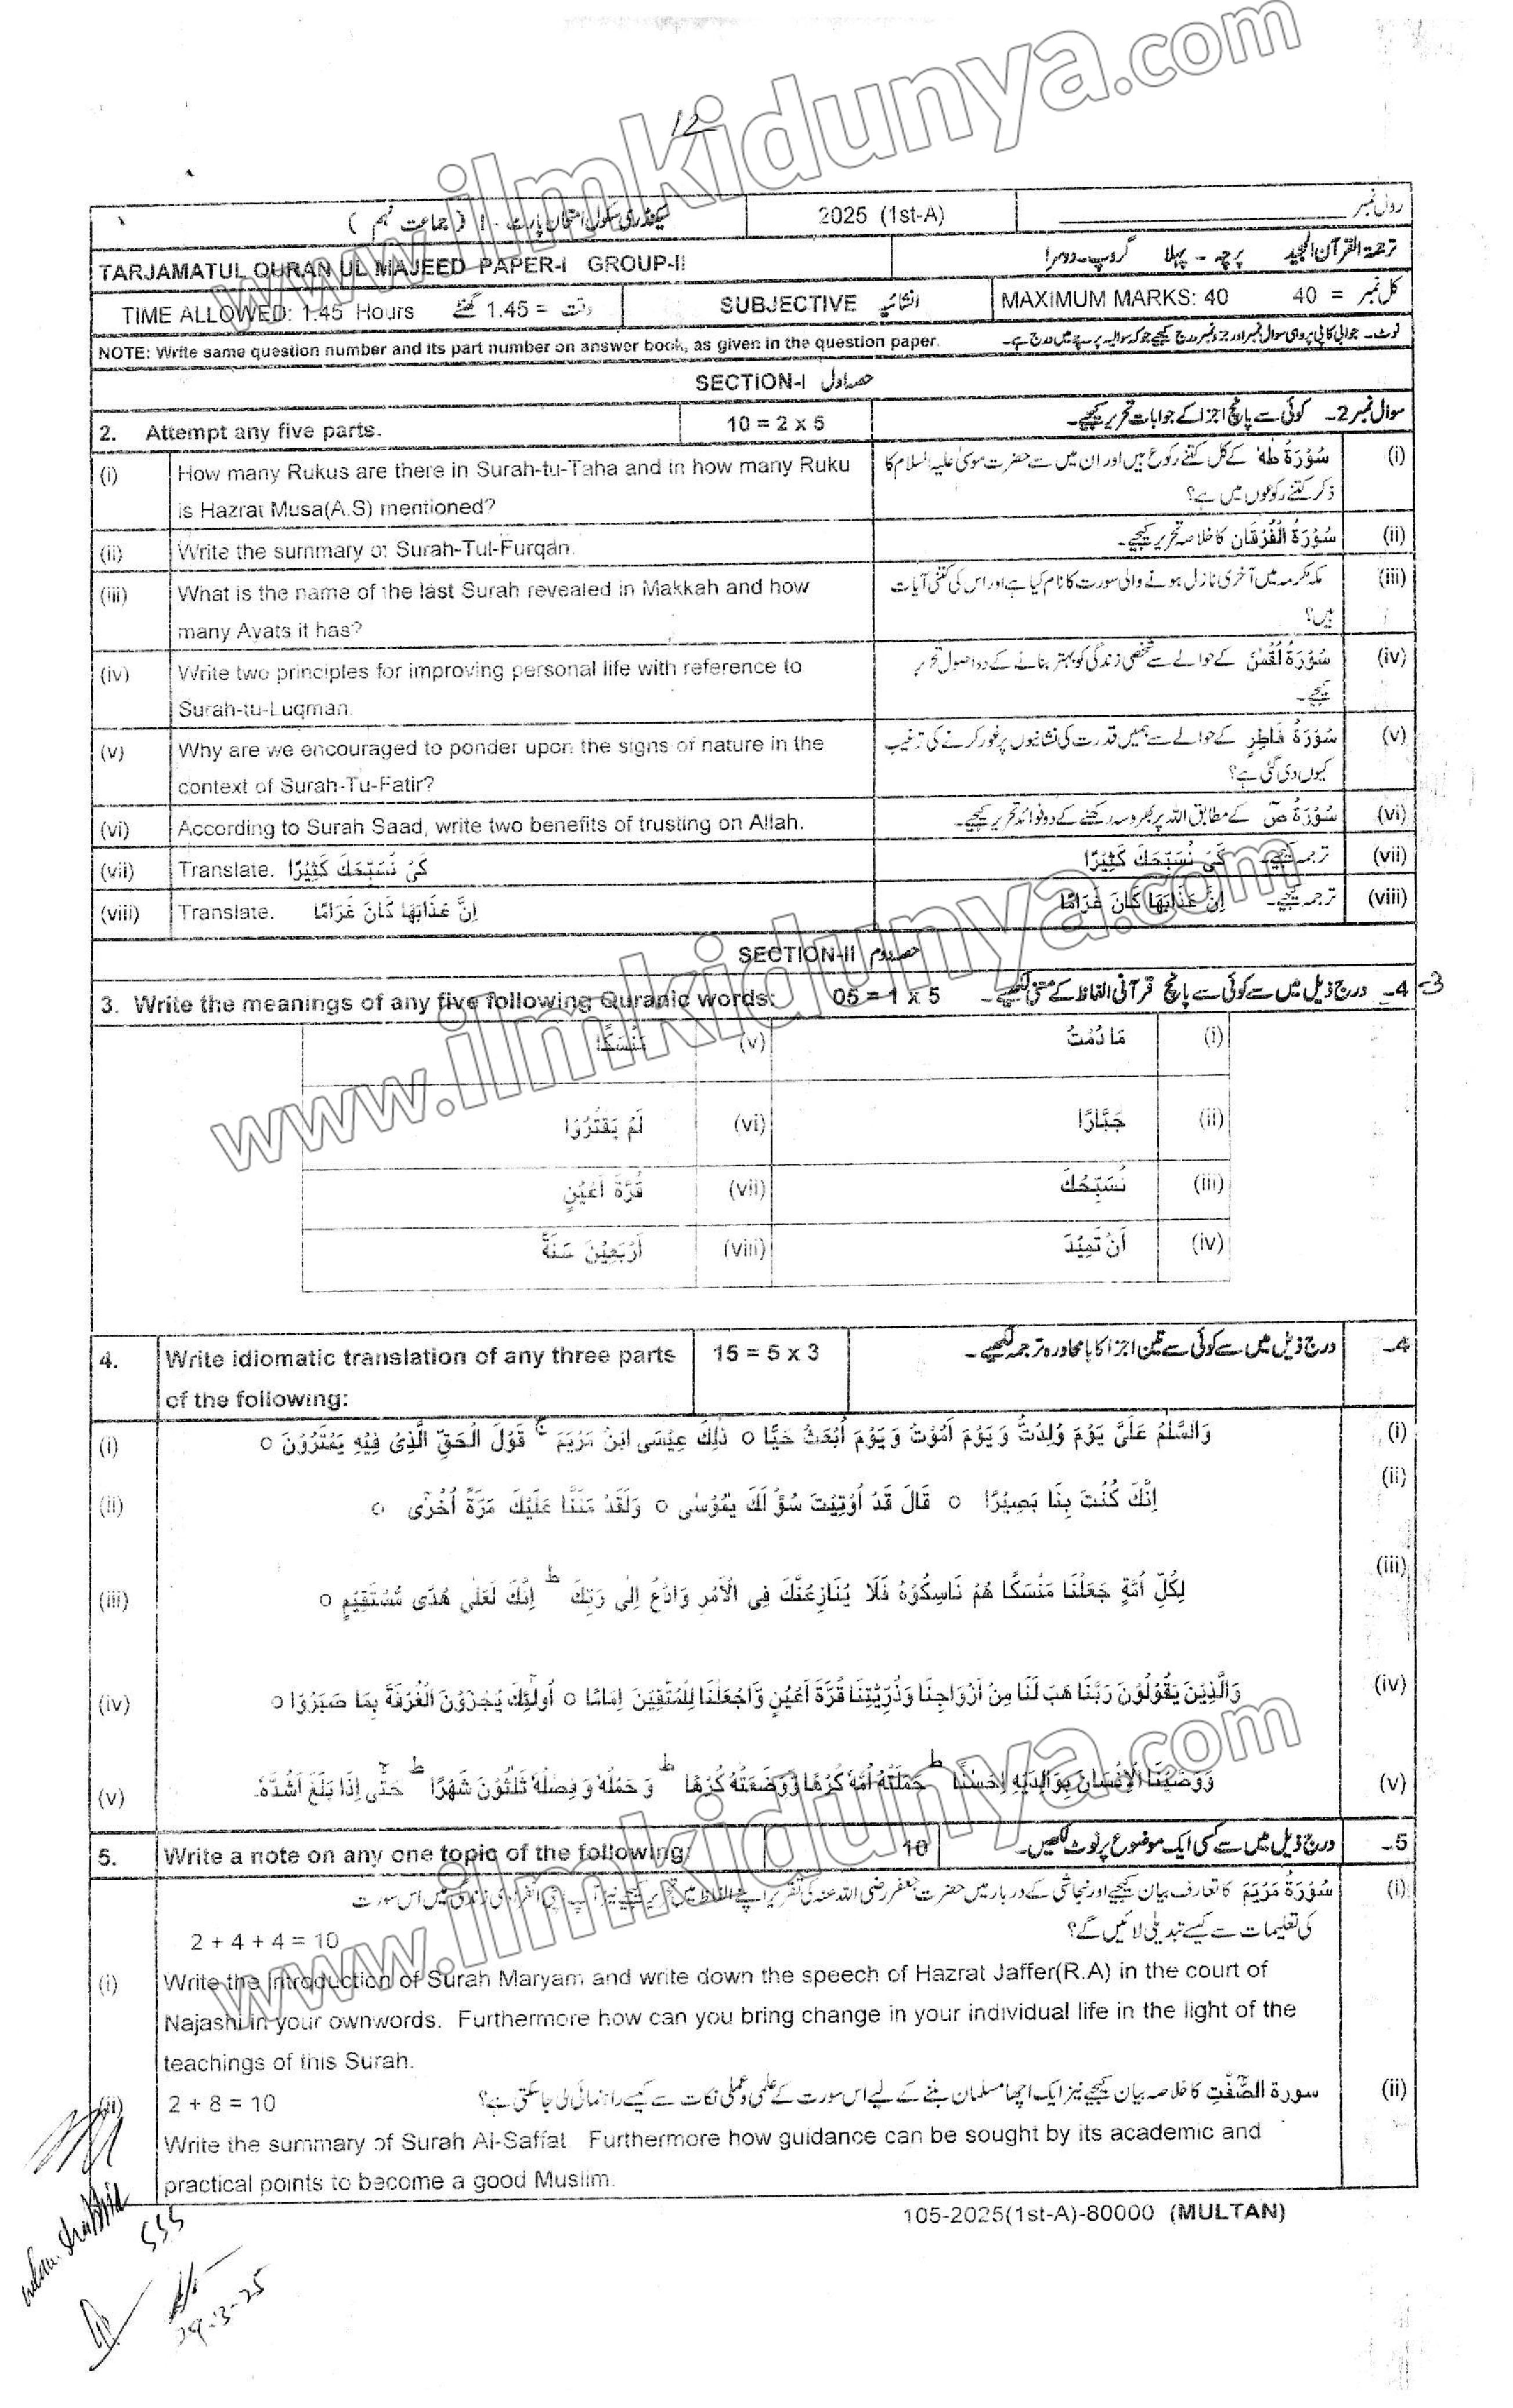 www.ilmkidunya.com
12
رول نمبر
2025 (1st-A)
سیکنڈری سکول امتحان پارٹ - I ( جماعت نہم )
TARJAMATUL QURAN UL MAJEED PAPER-I GROUP-II
ترجمۃ القرآن المجید پرچہ - پہلا گروپ - دوسرا
TIME ALLOWED: 1.45 Hours وقت = 1.45 گھنٹے
SUBJECTIVE انشائیہ
MAXIMUM MARKS: 40 کل نمبر = 40
NOTE: Write same question number and its part number on answer book, as given in the question paper.
نوٹ۔ جوابی کاپی پر وہی سوال نمبر اور جز نمبر درج کیجیے جو کہ سوالیہ پرچے میں درج ہے۔
SECTION-I حصہ اول
2. Attempt any five parts. 10 = 2 x 5 سوال نمبر 2۔ کوئی سے پانچ اجزا کے جوابات تحریر کیجیے۔
(i) How many Rukus are there in Surah-tu-Taha and in how many Ruku
is Hazrat Musa(A.S) mentioned?
(i) سُوْرَۃُ طٰہٰ کے کل کتنے رکوع ہیں اور ان میں سے حضرت موسیٰ علیہ السلام کا
ذکر کتنے رکوعوں میں ہے؟
(ii) Write the summary of Surah-Tul-Furqan.
(ii) سُوْرَۃُ الْفُرْقَان کا خلاصہ تحریر کیجیے۔
(iii) What is the name of the last Surah revealed in Makkah and how
many Ayats it has?
(iii) مکہ مکرمہ میں آخری نازل ہونے والی سورت کا نام کیا ہے اور اس کی کتنی آیات
ہیں؟
(iv) Write two principles for improving personal life with reference to
Surah-tu-Luqman.
(iv) سُوْرَۃُ لُقْمٰنَ کے حوالے سے شخصی زندگی کو بہتر بنانے کے دو اصول تحریر
کیجیے۔
(v) Why are we encouraged to ponder upon the signs of nature in the
context of Surah-Tu-Fatir?
(v) سُوْرَۃُ فَاطِرٍ کے حوالے سے ہمیں قدرت کی نشانیوں پر غور کرنے کی ترغیب
کیوں دی گئی ہے؟
(vi) According to Surah Saad, write two benefits of trusting on Allah.
(vi) سُوْرَۃُ صٓ کے مطابق اللہ پر بھروسہ رکھنے کے دو فوائد تحریر کیجیے۔
(vii) Translate. كَیْ نُسَبِّحَكَ كَثِیْرًا
(vii) ترجمہ کیجیے۔ كَیْ نُسَبِّحَكَ كَثِیْرًا
(viii) Translate. اِنَّ عَذَابَهَا كَانَ غَرَامًا
(viii) ترجمہ کیجیے۔ اِنَّ عَذَابَهَا كَانَ غَرَامًا
www.ilmkidunya.com
SECTION-II حصہ دوم
3. Write the meanings of any five following Quranic words: 05 = 1 x 5 4۔ درج ذیل میں سے کوئی سے پانچ قرآنی الفاظ کے معنی لکھیے۔ -3
(i) مَا دُمْتُ (v) مَنْسَكًا
(ii) جَبَّارًا (vi) لَمْ یَقْتُرُوْا
(iii) نُسَبِّحَكَ (vii) قُرَّةَ اَعْیُنٍ
(iv) اَنْ تَمِیْدَ (viii) اَرْبَعِیْنَ سَنَةً
4. Write idiomatic translation of any three parts 15 = 5 x 3 4۔ درج ذیل میں سے کوئی سے تین اجزا کا بامحاورہ ترجمہ لکھیے۔
of the following:
(i) وَالسَّلٰمُ عَلَیَّ یَوْمَ وُلِدْتُّ وَ یَوْمَ اَمُوْتُ وَ یَوْمَ اُبْعَثُ حَیًّا ○ ذٰلِكَ عِیْسَی ابْنُ مَرْیَمَ ۚ قَوْلَ الْحَقِّ الَّذِیْ فِیْهِ یَمْتَرُوْنَ ○ (i)
(ii) اِنَّكَ كُنْتَ بِنَا بَصِیْرًا ○ قَالَ قَدْ اُوْتِیْتَ سُؤْلَكَ یٰمُوْسٰی ○ وَلَقَدْ مَنَنَّا عَلَیْكَ مَرَّةً اُخْرٰٓی ○ (ii)
(iii) لِكُلِّ اُمَّةٍ جَعَلْنَا مَنْسَكًا هُمْ نَاسِكُوْهُ فَلَا یُنَازِعُنَّكَ فِی الْاَمْرِ وَادْعُ اِلٰی رَبِّكَ ؕ اِنَّكَ لَعَلٰی هُدًی مُّسْتَقِیْمٍ ○ (iii)
(iv) وَالَّذِیْنَ یَقُوْلُوْنَ رَبَّنَا هَبْ لَنَا مِنْ اَزْوَاجِنَا وَذُرِّیّٰتِنَا قُرَّةَ اَعْیُنٍ وَّاجْعَلْنَا لِلْمُتَّقِیْنَ اِمَامًا ○ اُولٰٓئِكَ یُجْزَوْنَ الْغُرْفَةَ بِمَا صَبَرُوْا ○ (iv)
(v) وَوَصَّیْنَا الْاِنْسَانَ بِوَالِدَیْهِ اِحْسٰنًا ؕ حَمَلَتْهُ اُمُّهٗ كُرْهًا وَّوَضَعَتْهُ كُرْهًا ؕ وَ حَمْلُهٗ وَ فِصٰلُهٗ ثَلٰثُوْنَ شَهْرًا ؕ حَتّٰۤی اِذَا بَلَغَ اَشُدَّهٗ (v)
www.ilmkidunya.com
5. Write a note on any one topic of the following: 10 5۔ درج ذیل میں سے کسی ایک موضوع پر نوٹ لکھیں۔
(i) سُوْرَۃُ مَرْیَمَ کا تعارف بیان کیجیے اور نجاشی کے دربار میں حضرت جعفر رضی اللہ عنہ کی تقریر اپنے الفاظ میں تحریر کیجیے نیز آپ اپنی انفرادی زندگی میں اس سورت
کی تعلیمات سے کیسے تبدیلی لائیں گے؟ 2 + 4 + 4 = 10
(i) Write the Introduction of Surah Maryam and write down the speech of Hazrat Jaffer(R.A) in the court of
Najashi in your ownwords. Furthermore how can you bring change in your individual life in the light of the
teachings of this Surah.
(ii) 2 + 8 = 10 سورۃ الصّٰٓفّٰتِ کا خلاصہ بیان کیجیے نیز ایک اچھا مسلمان بننے کے لیے اس سورت کے علمی و عملی نکات سے کیسے راہنمائی لی جا سکتی ہے؟ (ii)
Write the summary of Surah Al-Saffat. Furthermore how guidance can be sought by its academic and
practical points to become a good Muslim.
105-2025(1st-A)-80000 (MULTAN)
SSS
29-3-25